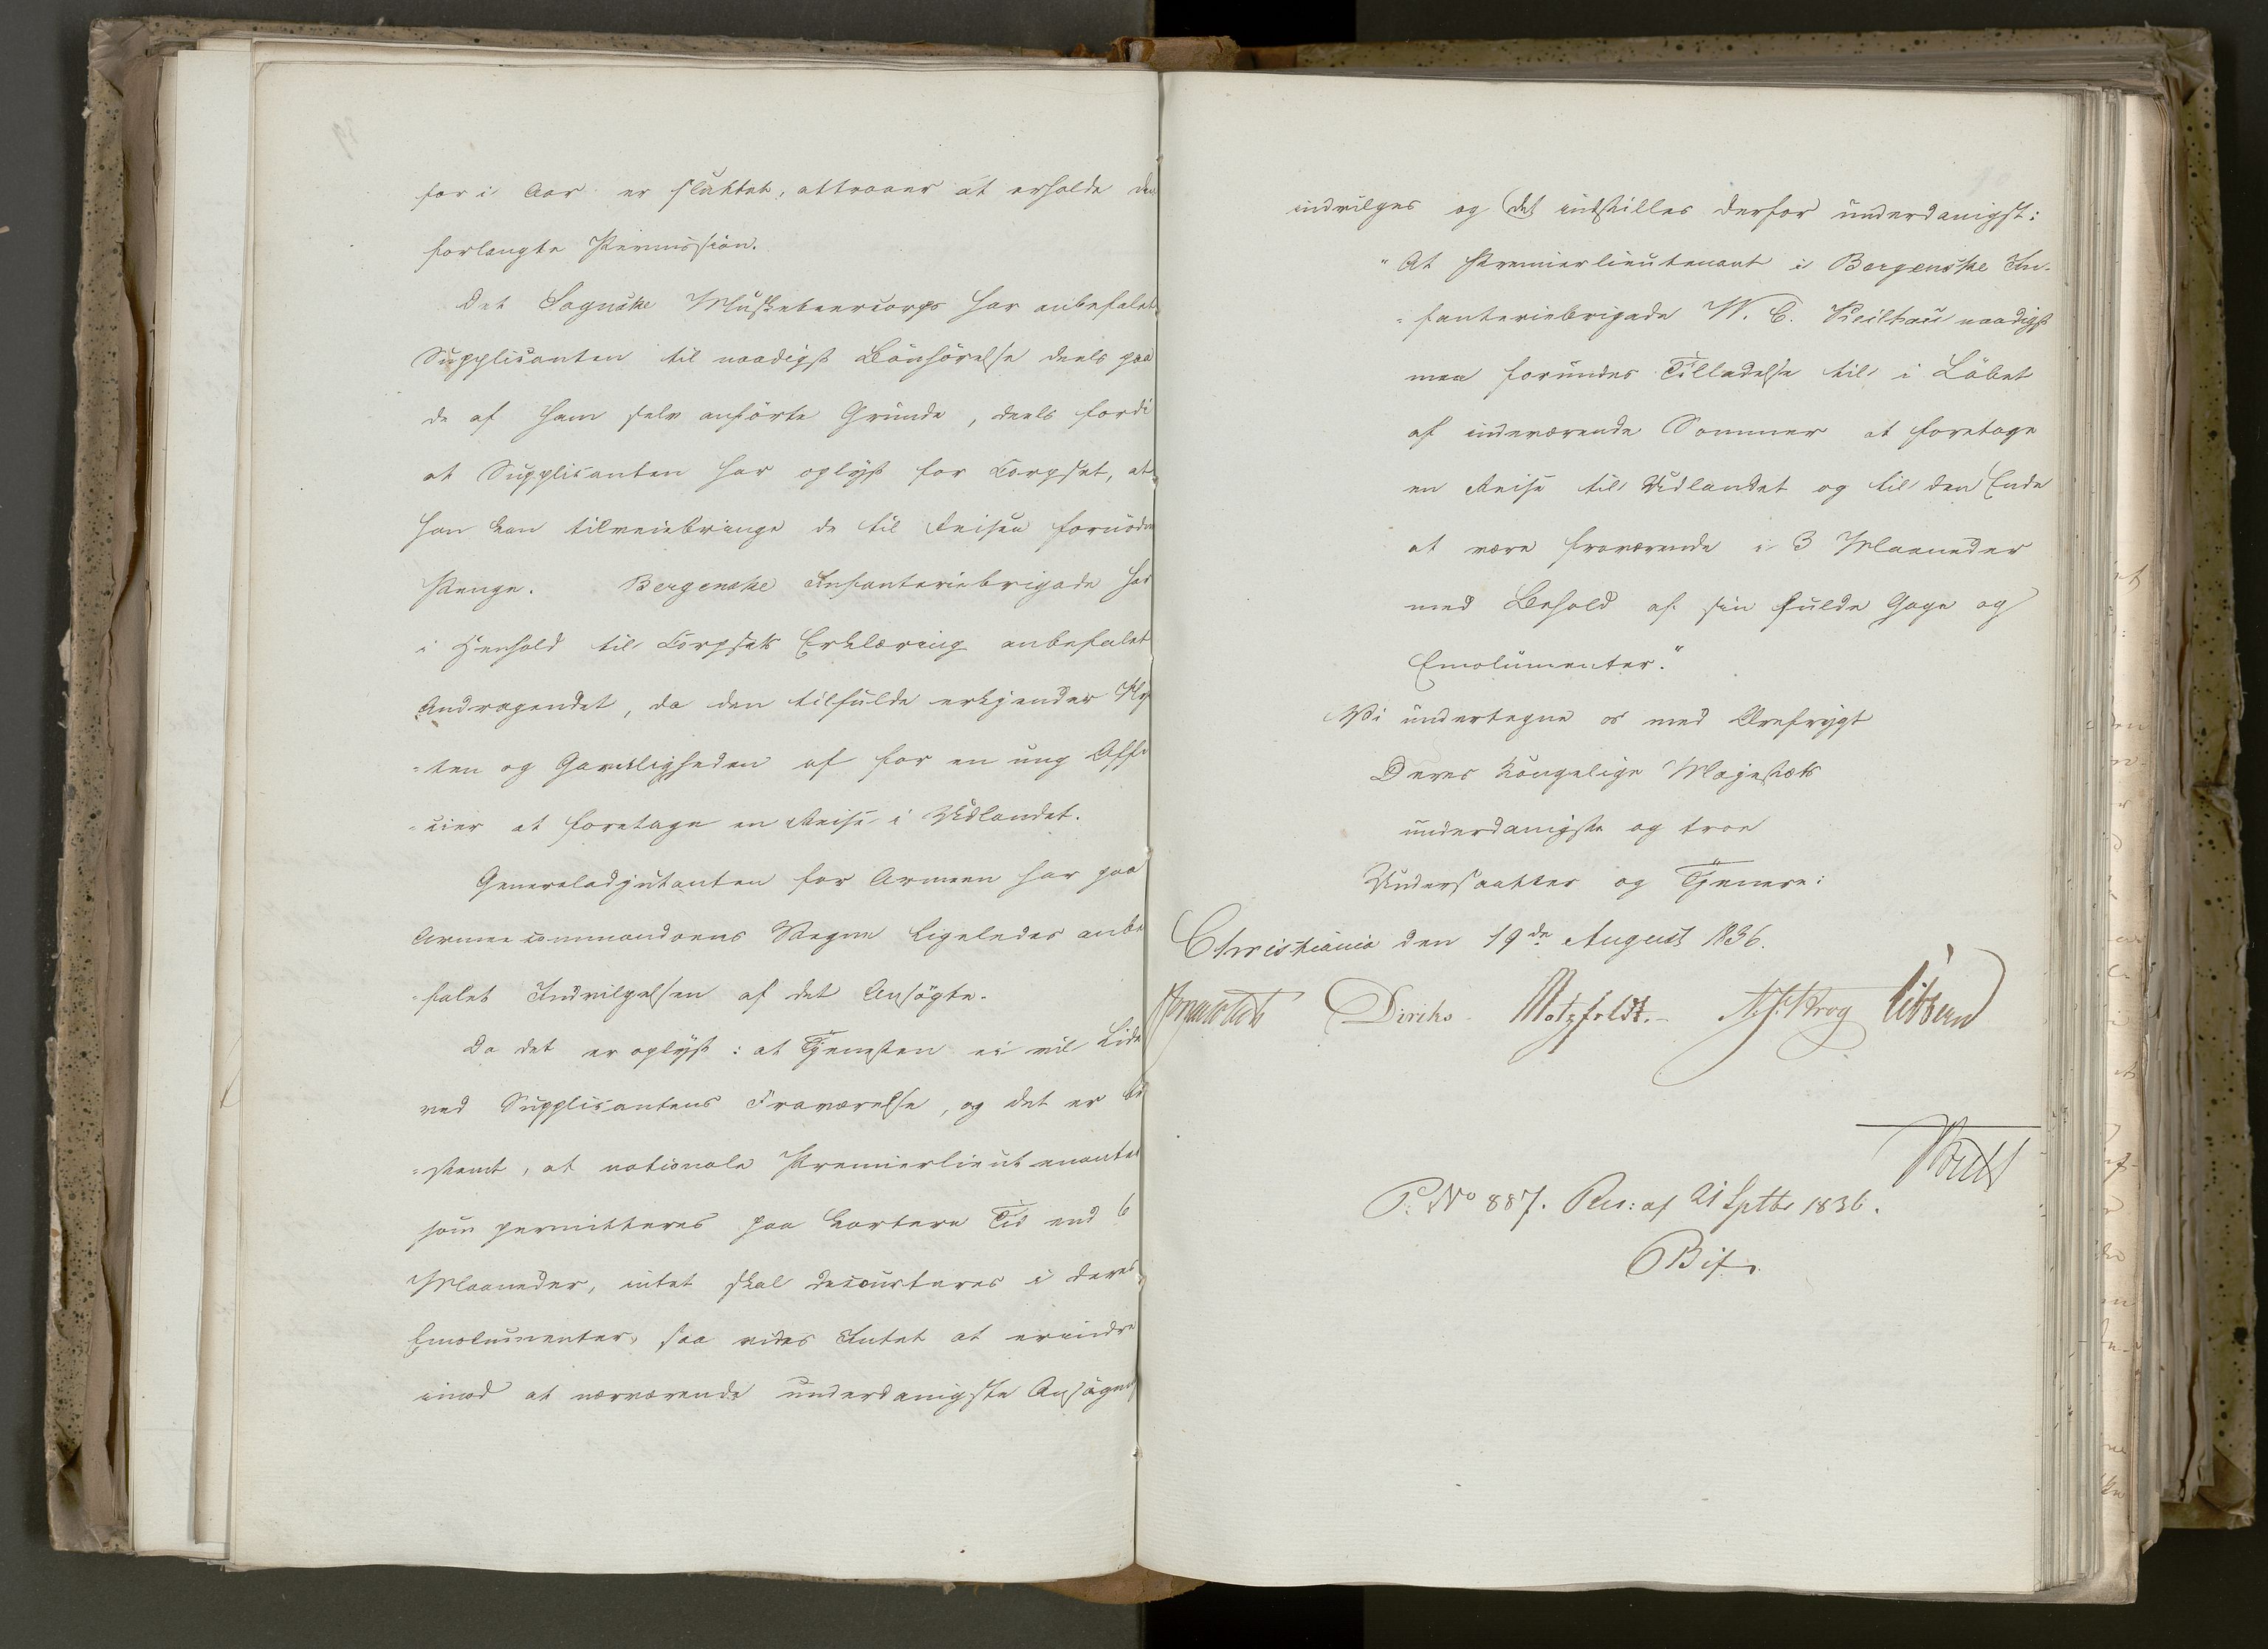 for i Aar er sluttet, attraaer at erholde den
forlangte Permission.
Det Sognske Musketeercorps har anbefalet
Supplicanten til naadigst Bönhörelse deels paa
de af ham selv anförte Grunde, deels fordi
at Supplicanten har oplyst for Corpset, at
han kan tilveiebringe de til Reisen fornödne
Penge. Bergenske Infanteriebrigade har
i Henhold til Corpsets Erklæring anbefalet
Andragendet, da den tilfulde erkjender Ny
-ten og Gavnligheden af for en ung Offi
-cier at foretage en Reise i Udlandet.
Generaladjutanten for Armeen har paa
Armeecommandoens Vegne ligeledes anbe
-falet Indvilgelsen af det Ansögte.
Da det er oplyst: at Tjenesten ei vil lide
ved Supplicantens Fraværelse, og det er be
-stemt, at nationale Premierlieutenanter
som permitteres paa kortere Tid end 6
Maaneder, intet skal decourteres i deres
Emolumenter, saa vides Intet at erindre
imod at nærværende underdanigste Ansögning
indvilges og det indstilles derfor underdanigst:
"At Premierlieutenant i Bergenske In-
-fanteriebrigade W. C. Keilhau naadigst
maa forundes Tilladelse til i Löbet
af indeværende Sommer at foretage
en Reise til Udlandet og til den Ende
at være fraværende i 3 Maaneder
med Behold af sin fulde Gage og
Emolumenter."
Vi undertegne os med Ærefrygt
Deres Kongelige Majestæts
underdanigste og troe
Undersaatter og Tjenere:
Christiania den 19de August 1836.
Diriks Motzfeldt. Krog
P: No 887. Res: af 21 Septbr 1836.